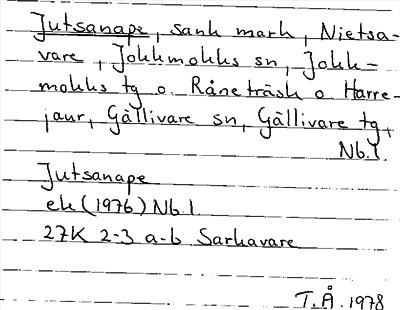 Jutsanape, sank mark, Nietsa-
vare, Jokkmokks sn, Jokk-
mokks tg o. Råneträsk o Harre-
jaur, Gällivare sn, Gällivare tg,
Nb.l.
Jutsanape
ek (1976) Nb.l.
27K 2-3 a-b Sarkavare
T.Å. 1978